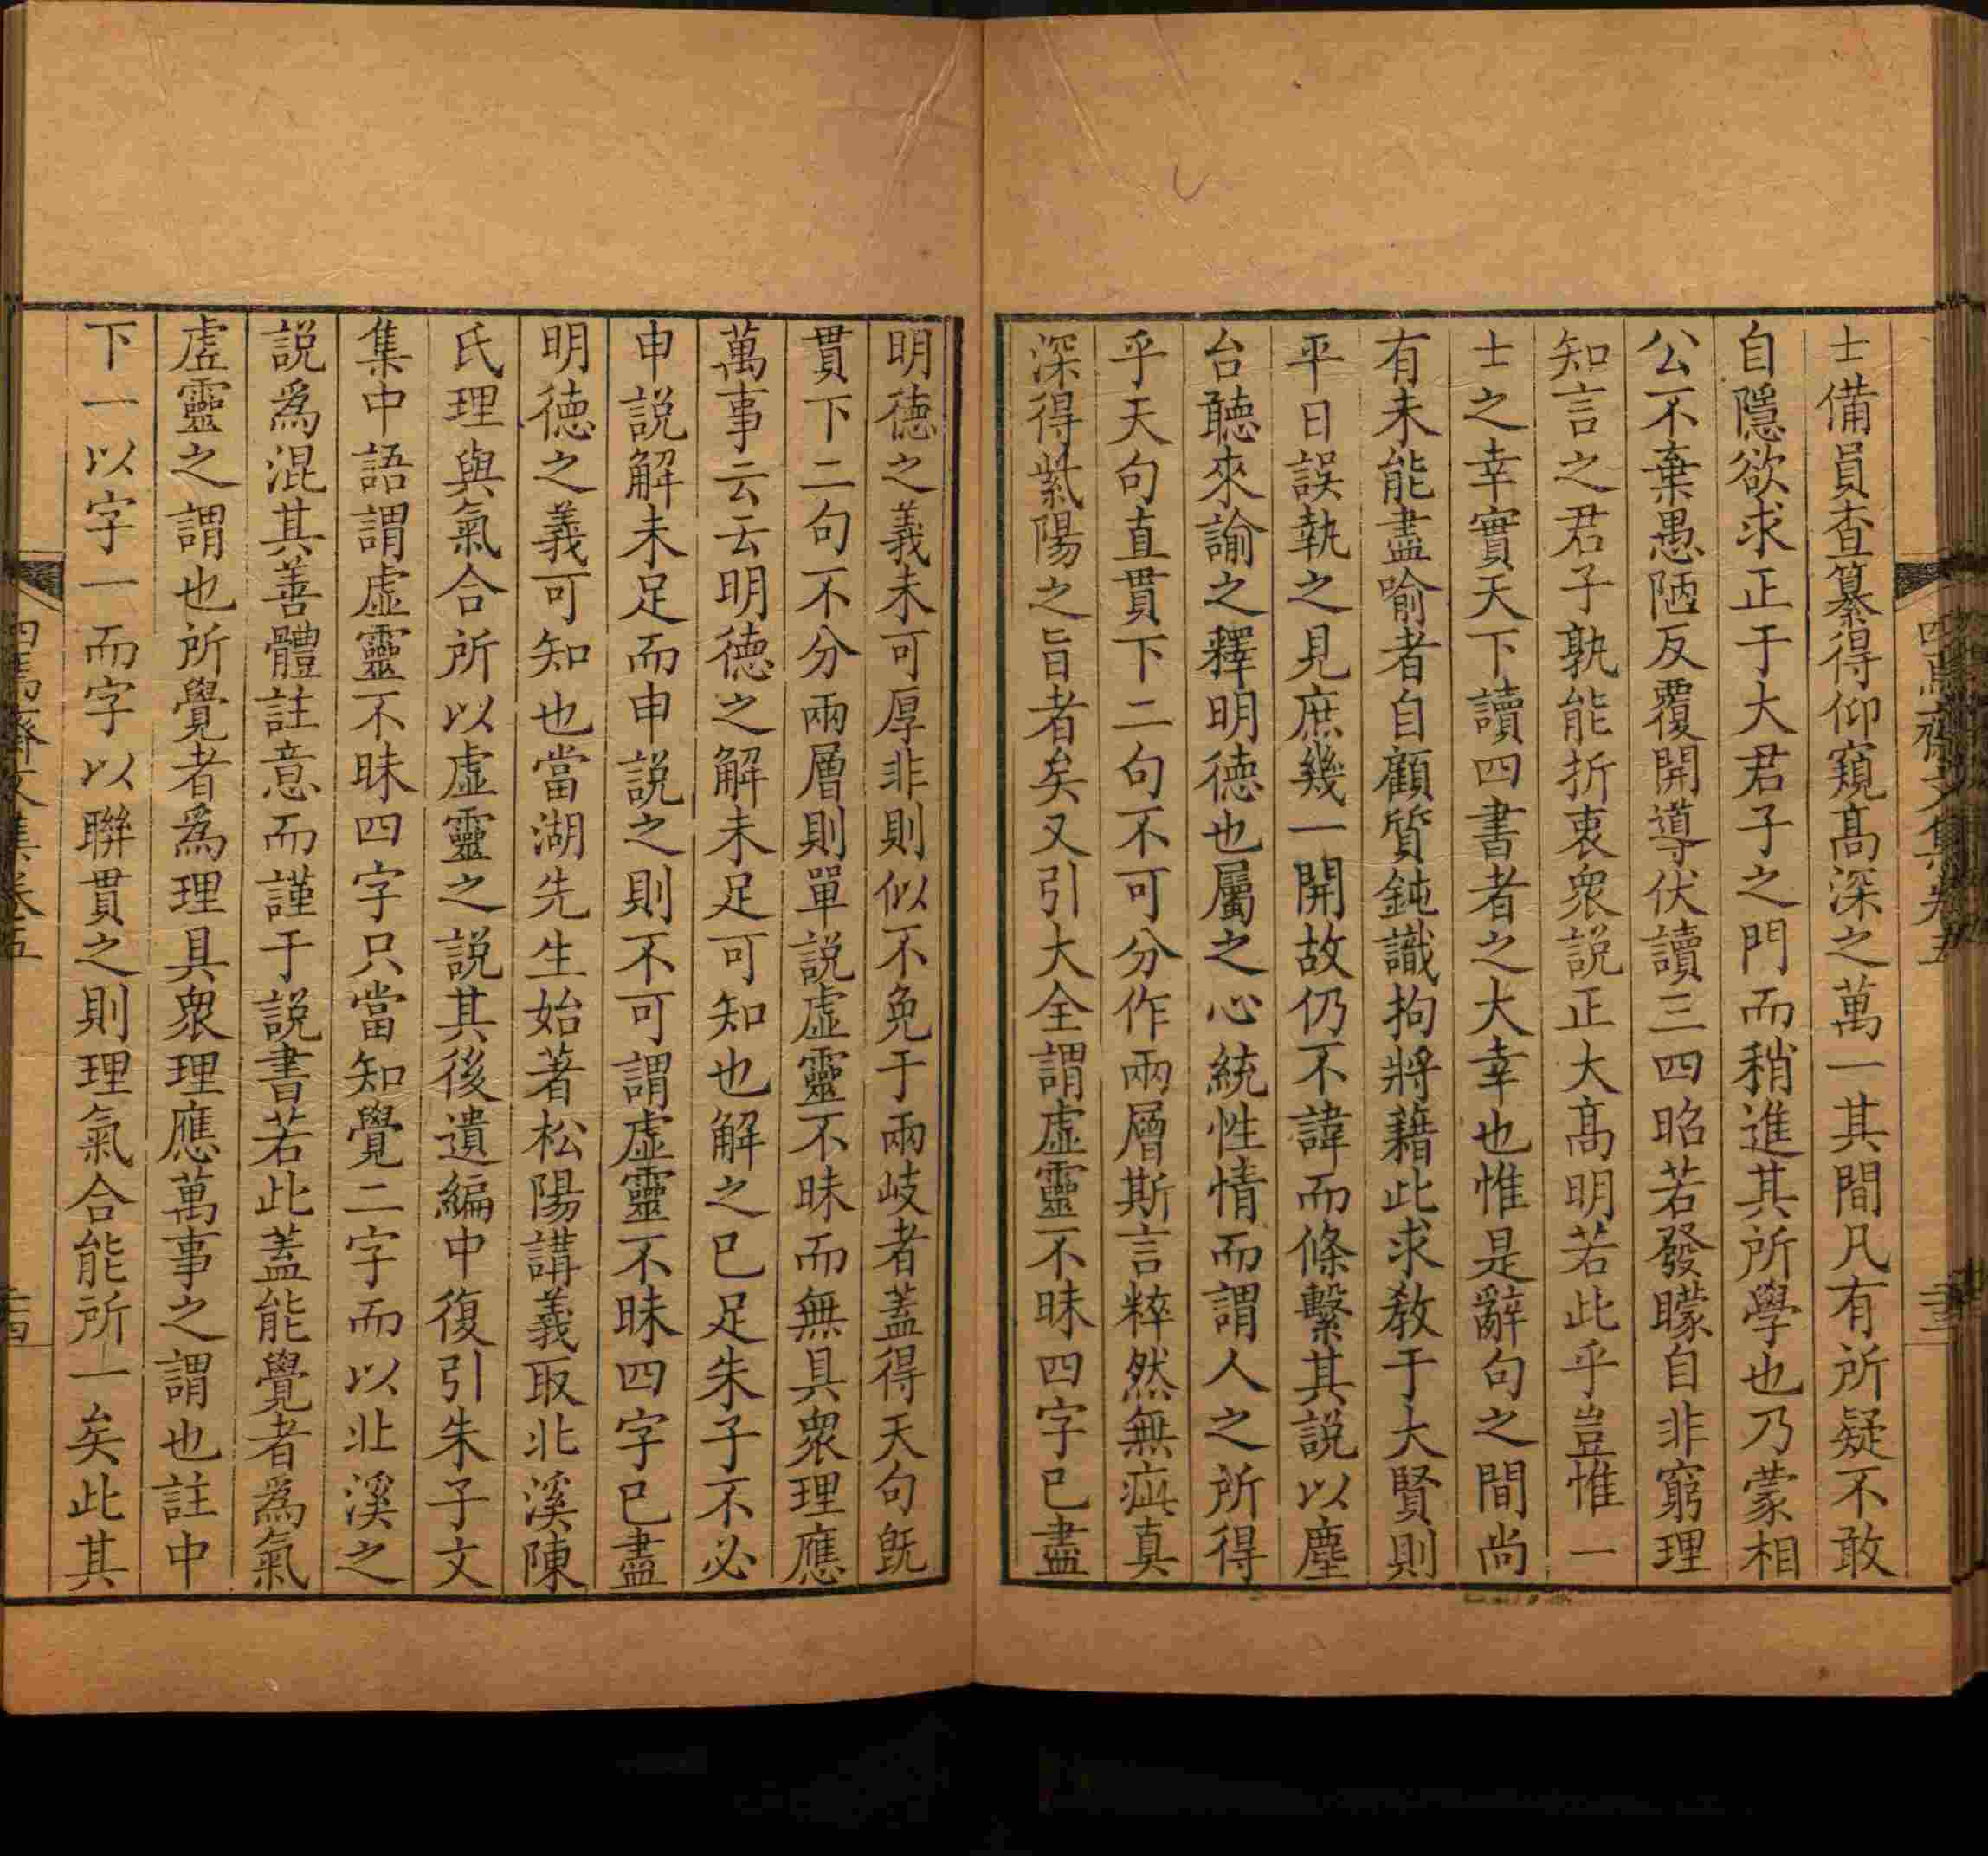 士備員查纂得仰窺髙深之萬一其間凡有所疑不敢
自隱欲求正于大君子之門而稍進其所學也乃蒙相
公不棄愚陋反覆開導伏讀三四昭若發矇自非窮理
知言之君子孰能折衷衆説正大髙明若此乎豈惟一
士之幸實天下讀四書者之大幸也惟是辭句之間尚
有未能盡喻者自顧質鈍識拘將藉此求教于大賢則
平日誤執之見庶幾一開故仍不諱而條繫其説以塵
台聽來諭之釋明徳也屬之心統性情而謂人之所得
乎天句直貫下二句不可分作兩層斯言粹然無疵真
深得紫陽之旨者矣又引大全謂虛靈不昧四字已盡
明徳之義未可厚非則似不免于兩岐者蓋得天句旣
貫下二句不分兩層則單説虛靈不昧而無具衆理應
萬事云云明徳之解未足可知也解之已足朱子不必
申説解未足而申説之則不可謂虛靈不昧四字已盡
明徳之義可知也當湖先生始著松陽講義取北溪陳
氏理與氣合所以虛靈之説其後遺編中復引朱子文
集中語謂虛靈不昧四字只當知覺二字而以北溪之
説爲混其善體註意而謹于説書若此蓋能覺者爲氣
虛靈之謂也所覺者爲理具衆理應萬事之謂也註中
下一以字一而字以聯貫之則理氣合能所一矣此其